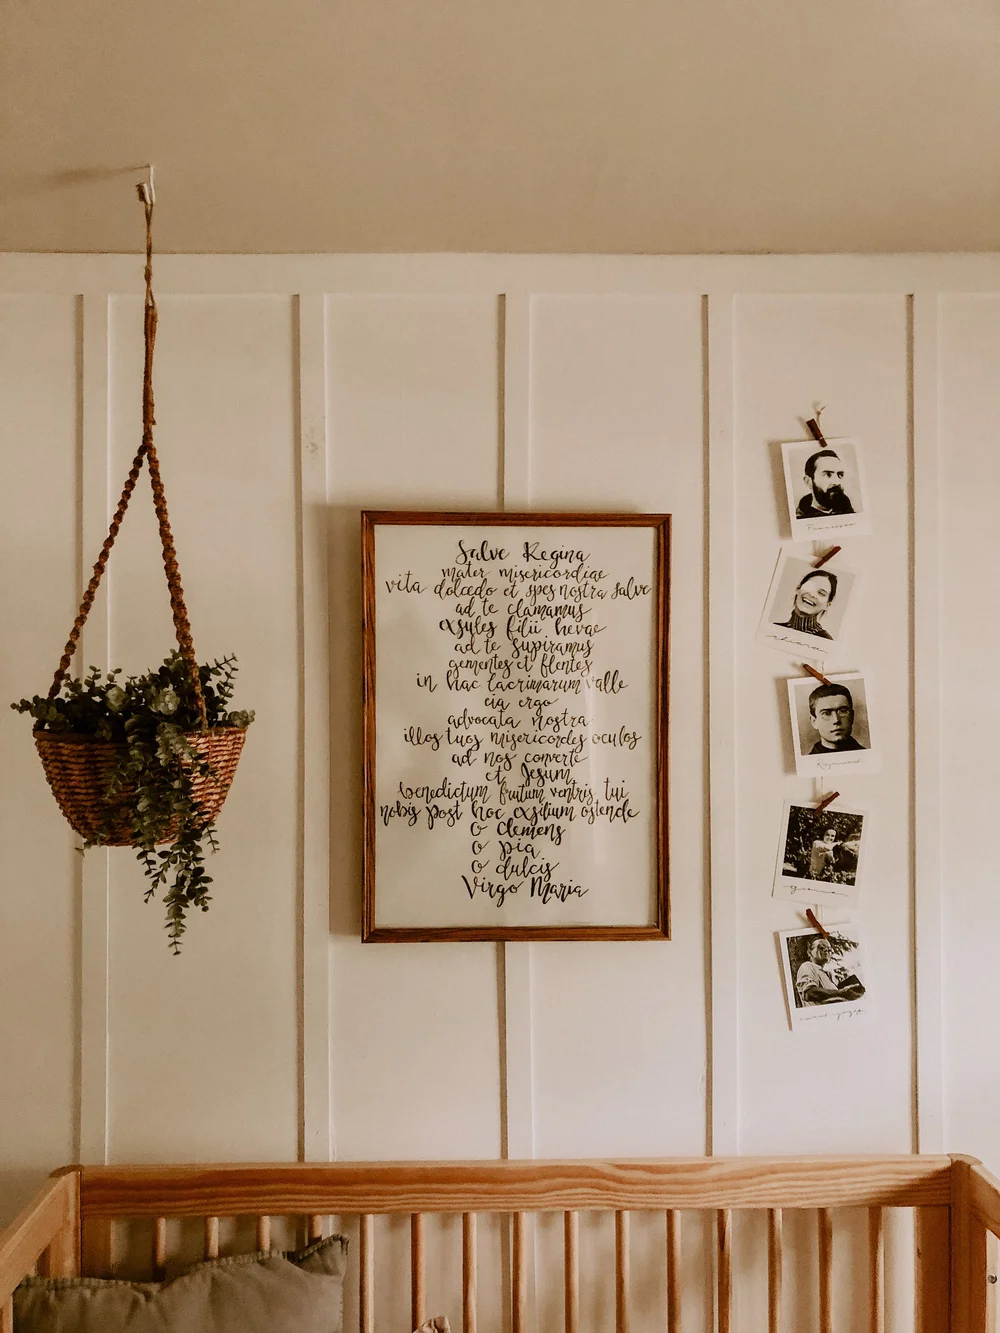 Salve Regina
mater misericordiae
vita dolcedo et spes nostra salve
ad te clamamus
exsules filii hevae
ad te supiramus
gementes et flentes
in hac lacrimarum valle
eia ergo
advocata nostra
illos tuos misericordes oculos
ad nos converte
et Jesum
benedictum frutum ventris tui
nobis post hoc exsilium ostende
O clemens
O pia
O dulcis
Virgo Maria
Francesco
chiara
gianna